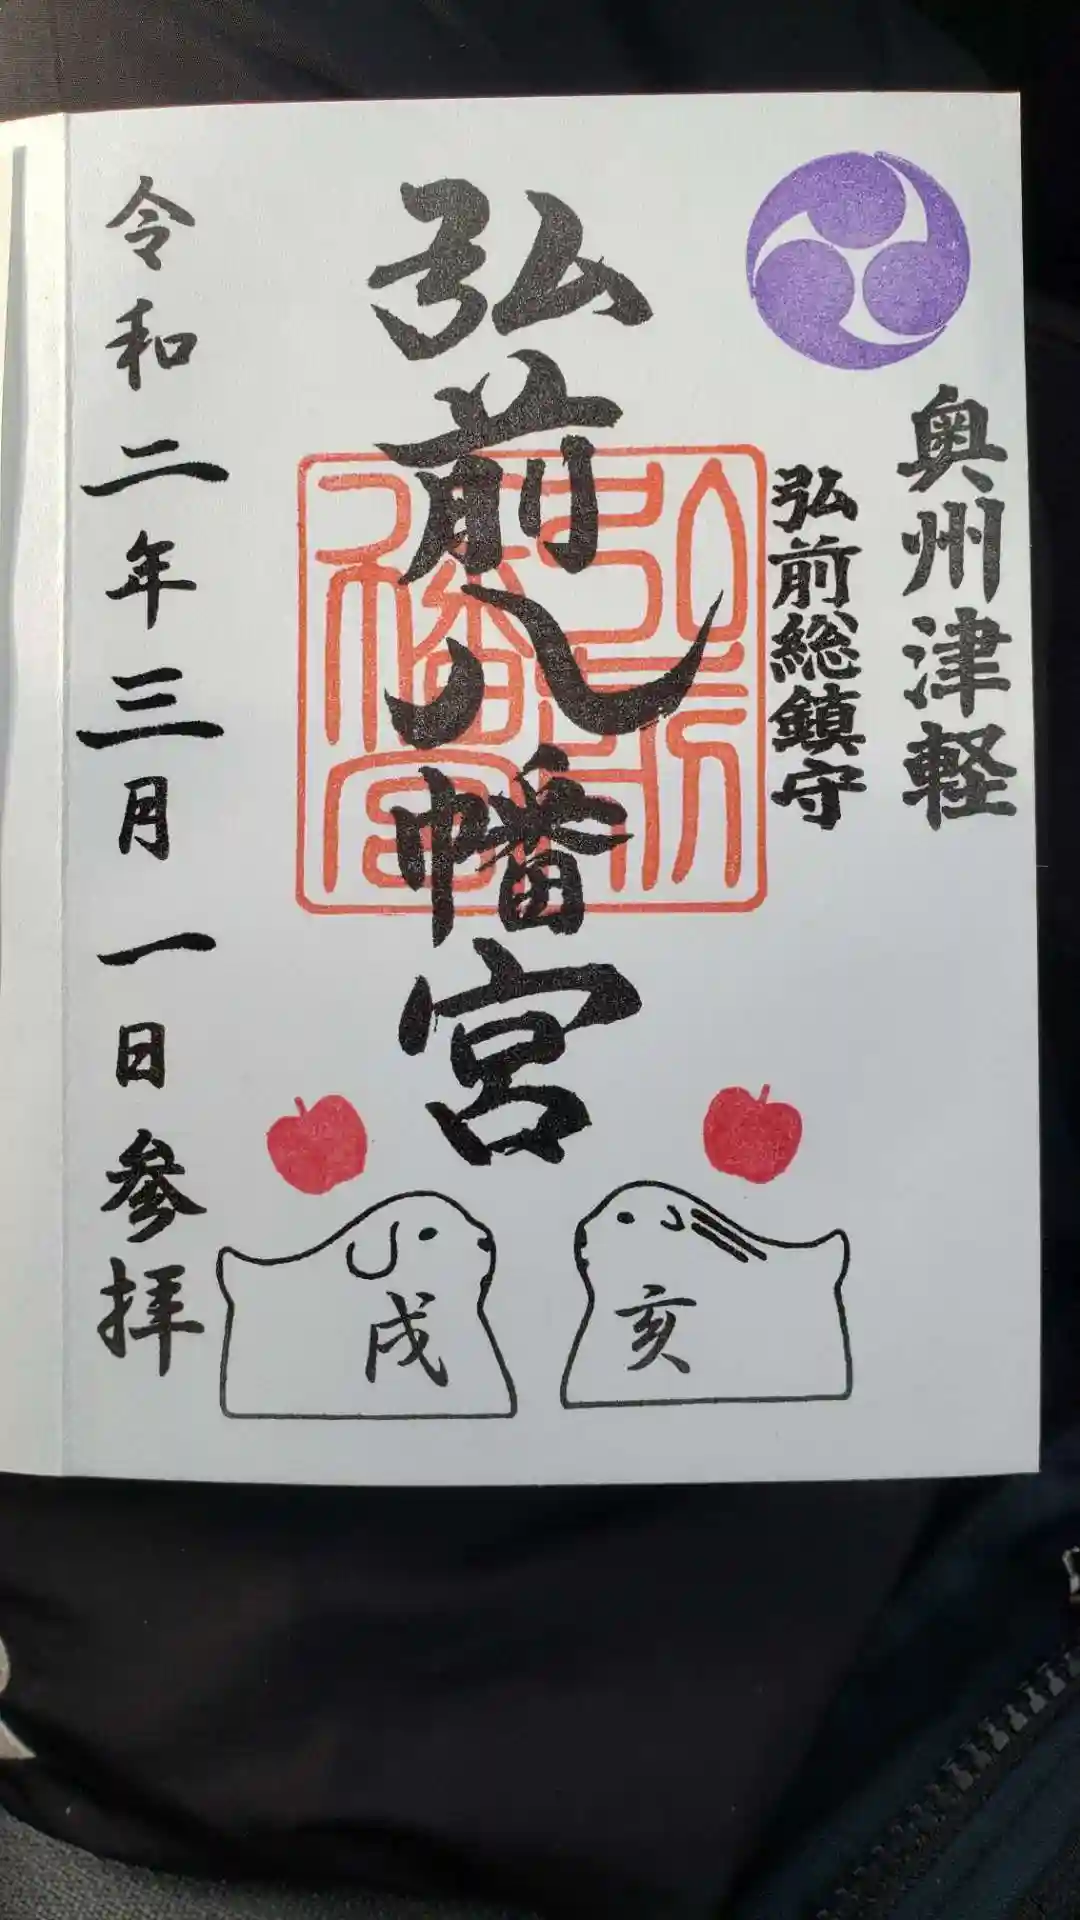 奥州津軽
弘前総鎮守
弘前八幡宮
弘前八幡宮
令和二年三月一日参拝
亥
戌